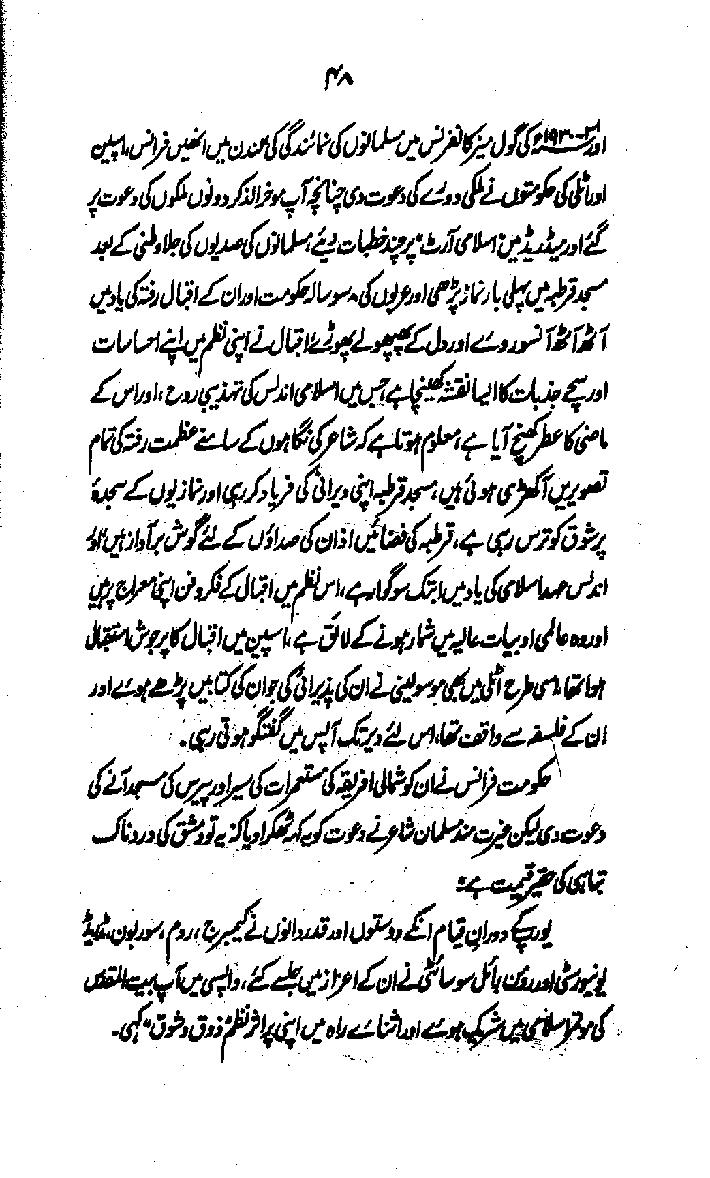 ۴۸
اور ۳۱-۱۹۳۰ء کی گول میز کانفرنس میں مسلمانوں کی نمائندگی کی، لندن میں انھیں فرانس، اسپین
اور اٹلی کی حکومتوں نے ملکی دورے کی دعوت دی چنانچہ آپ موخر الذکر دونوں ملکوں کی دعوت پر
گئے اور میڈریڈ میں "اسلامی آرٹ" پر چند خطبات دیئے، مسلمانوں کی صدیوں کی جلاوطنی کے بعد
مسجد قرطبہ میں پہلی بار نماز پڑھی اور عربوں کی ۸ سو سالہ حکومت اور ان کے اقبال رفتہ کی یاد میں
آٹھ آٹھ آنسو روئے اور دل کے پھپھولے پھوڑے، اقبال نے اپنی نظم میں اپنے احساسات
اور سچے جذبات کا ایسا نقشہ کھینچا ہے جس میں اسلامی اندلس کی تہذیبی روح، اور اس کے
ماضی کا عطر کھنچ آیا ہے، معلوم ہوتا ہے کہ شاعر کی نگاہوں کے سامنے عظمت رفتہ کی تمام
تصویریں آ کھڑی ہوئی ہیں، مسجد قرطبہ اپنی ویرانی کی فریاد کر رہی اور نمازیوں کے سجدۂ
پرشوق کو ترس رہی ہے، قرطبہ کی فضائیں اذان کی صداؤں کے لئے گوش بر آواز ہیں اور
اندلس عہد اسلامی کی یاد میں ابتک سوگوار ہے، اس نظم میں اقبال کے فکر و فن اپنی معراج پر ہیں
اور وہ عالمی ادبیات عالیہ میں شمار ہونے کے لائق ہے، اسپین میں اقبال کا پرجوش استقبال
ہوا تھا، اسی طرح اٹلی میں بھی موسولینی نے ان کی پذیرائی کی جو ان کی کتابیں پڑھے ہوئے اور
ان کے فلسفہ سے واقف تھا، اس لئے دیر تک آپس میں گفتگو ہوتی رہی۔
حکومت فرانس نے ان کو شمالی افریقہ کی مستعمرات کی سیر اور پیرس کی مسجد آنے کی
دعوت دی لیکن غیرت مند مسلمان شاعر نے دعوت کو یہ کہہ کر ٹھکرا دیا کہ "یہ تو دمشق کی دردناک
تباہی کی حقیر قیمت ہے"
یورپ کے دوران قیام انکے دوستوں اور قدردانوں نے کیمبرج، روم، سوربون، میڈریڈ
یونیورسٹی اور رومن رائل سوسائٹی نے ان کے اعزاز میں جلسے کئے، واپسی میں آپ بیت المقدس
کی موتمر اسلامی میں شریک ہوئے اور اثنائے راہ میں اپنی پراثر نظم "ذوق و شوق" کہی۔